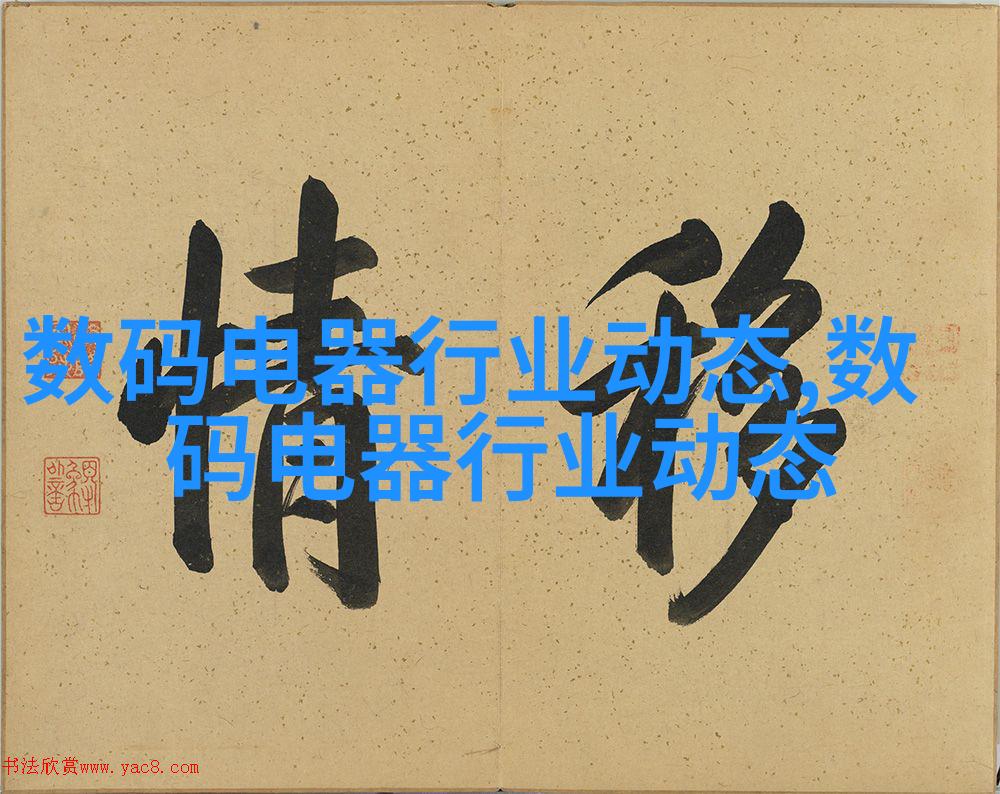 移情
数码电器行业动态,数
码电器行业动态
书法欣赏www.yac8.com